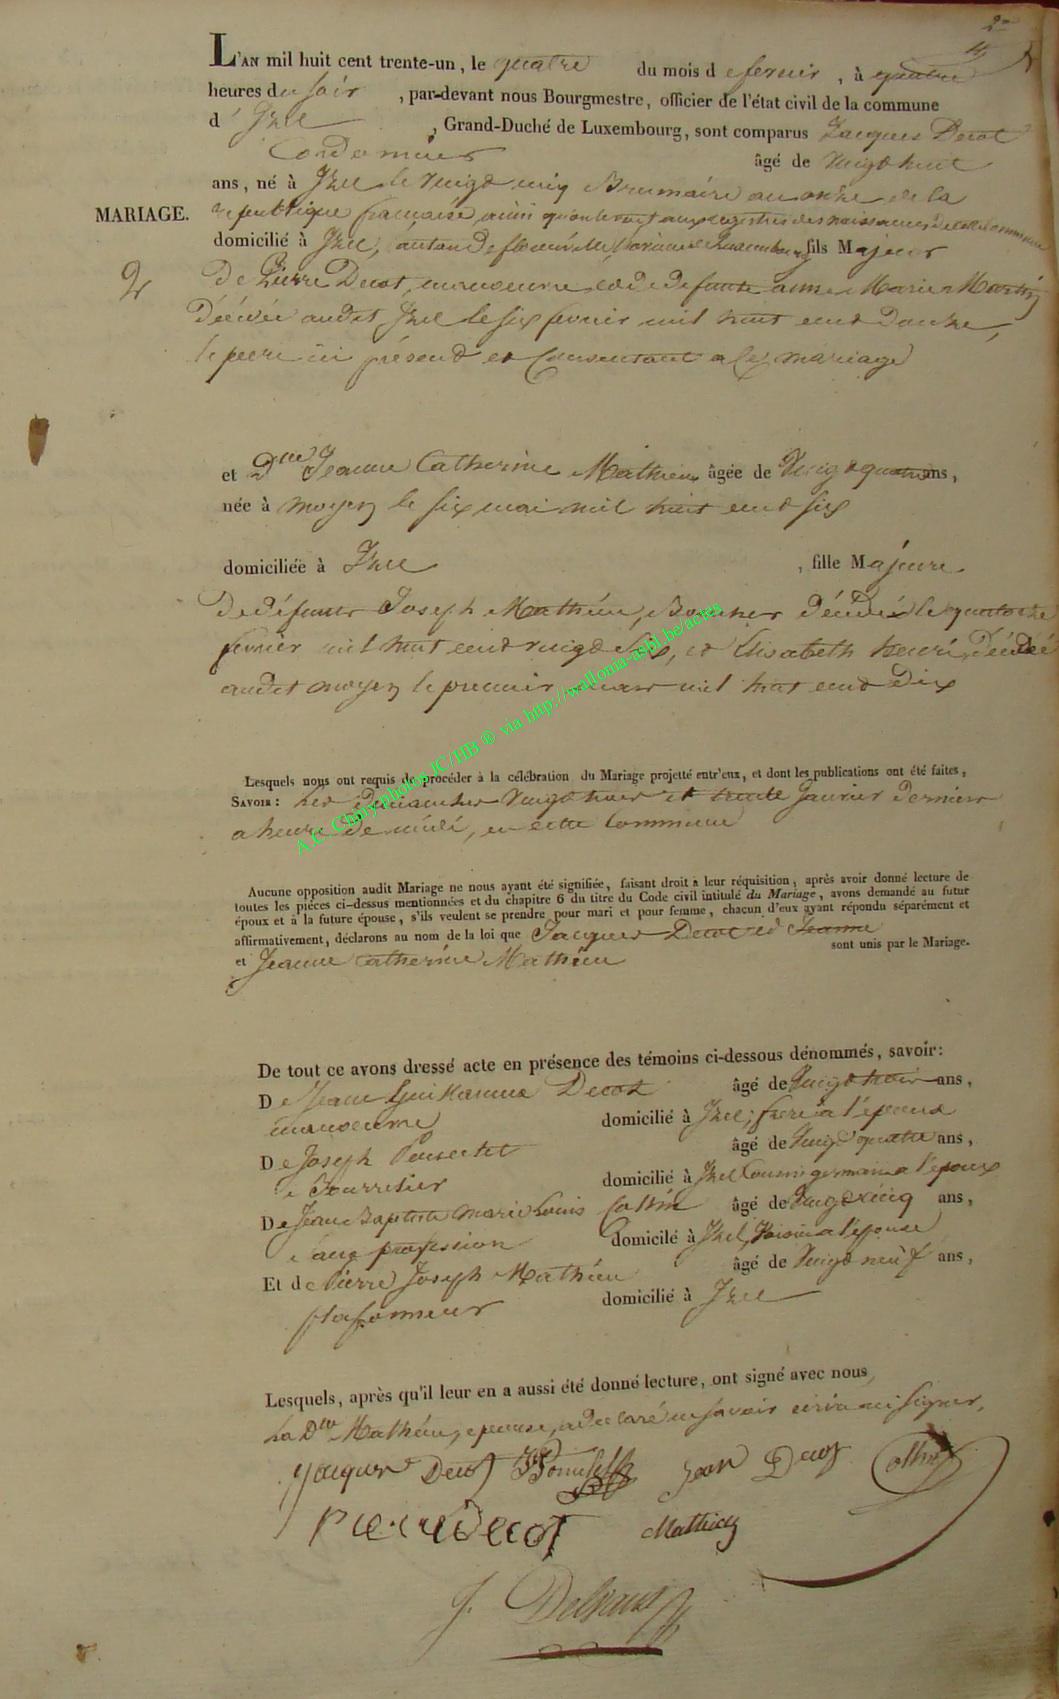 2
L'AN mil huit cent trente-un, le quatre du mois de fevrier, à quatre
heures du soir, par-devant nous Bourgmestre, officier de l'état civil de la commune
d'Izel, Grand-Duché de Luxembourg, sont comparus Jacques Decot
Cordonnier âgé de Vingt huit
ans, né à Izel le Vingt cinq Brumaire an onze de la
MARIAGE.
republique francaise, ainsi qu'on le voit aux registres des naissances de cette Commune
domicilié à Izel, canton de florenville, province de Luxembourg fils Majeur
2
De Pierre Decot, manoeuvre, et de defunte anne Marie Martin
Décédée audit Izel le six fevrier mil huit cent Douze,
le pere ici présent et Consentant a ce mariage
et Dlle Jeanne Catherine Mathieu âgée de Vingt quatre ans,
née à moyen le six mai mil huit cent six
domiciliée à Izel, fille Majeure
De défunts Joseph Mathieu, décédé le quatorze
fevrier mil huit cent vingt six, et Elisabeth henri, Décédée
audit moyen le premier mars mil huit cent Dix
A.C. Chiny photos JC/HB © via http://wallonia-asbl.be/actes
Lesquels nous ont requis de procéder à la célébration du Mariage projetté entr'eux, et dont les publications ont été faites,
SAVOIR: Les dimanches Vingt trois et trente Janvier dernier
a heure de midi, en cette Commune
Aucune opposition audit Mariage ne nous ayant été signifiée, faisant droit à leur réquisition, après avoir donné lecture de
toutes les pièces ci-dessus mentionnées et du chapitre 6 du titre du Code civil intitulé du Mariage, avons demandé au futur
époux et à la future épouse, s'ils veulent se prendre pour mari et pour femme, chacun d'eux ayant répondu séparément et
affirmativement, déclarons au nom de la loi que Jacques Decot et Jeanne
et Jeanne Catherine Mathieu sont unis par le Mariage.
De tout ce avons dressé acte en présence des témoins ci-dessous dénommés, savoir:
De Jean Guillaume Decot âgé de Vingt trois ans,
manoeuvre domicilié à Izel, frere a l'epoux
De Joseph âgé de Vingt quatre ans,
Bourrelier domicilié à Izel Cousin germain a l'epoux
De Jean Baptiste Marie Louis Collin âgé de Vingt cinq ans,
sans profession domicilé à Izel, Voisin a l'épouse
Et de Pierre Joseph Mathieu âgé de Vingt neuf ans,
plafonneur domicilié à Izel
Lesquels, après qu'il leur en a aussi été donné lecture, ont signé avec nous,
La Dlle Mathieu, epouse, a declaré ne savoir ecrire ni signer,
Jacques Decot Jean Decot Collin
Pierre Decot Mathieu
J.